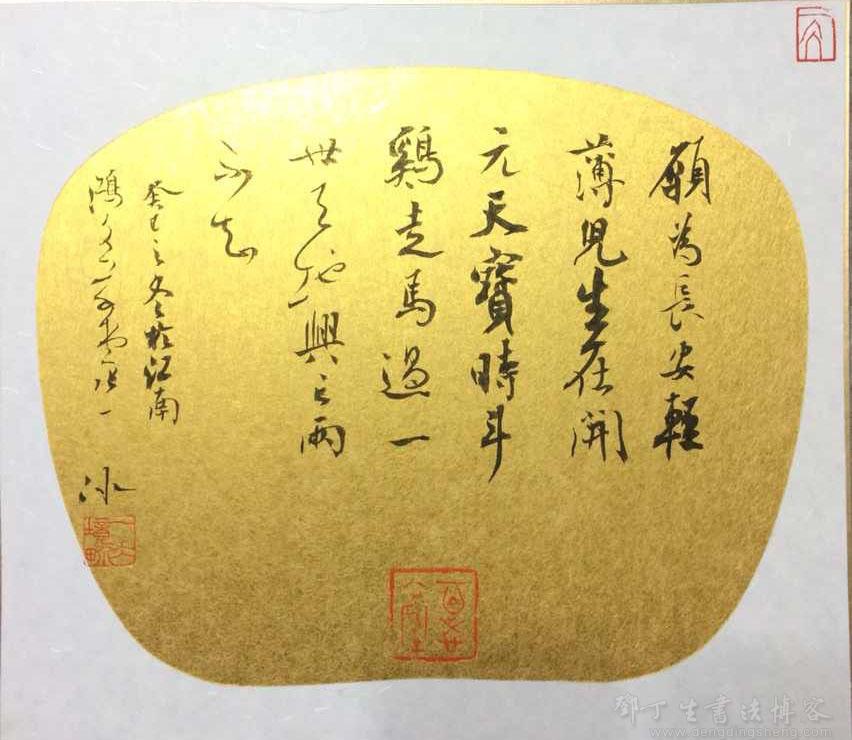 願為長安輕
薄兒生在開
元天寶時斗
鷄走馬過一
世天地興亡兩
不知
癸巳之冬於江南
一
冰
鄧丁生書法博客
www.dengdingsheng.com